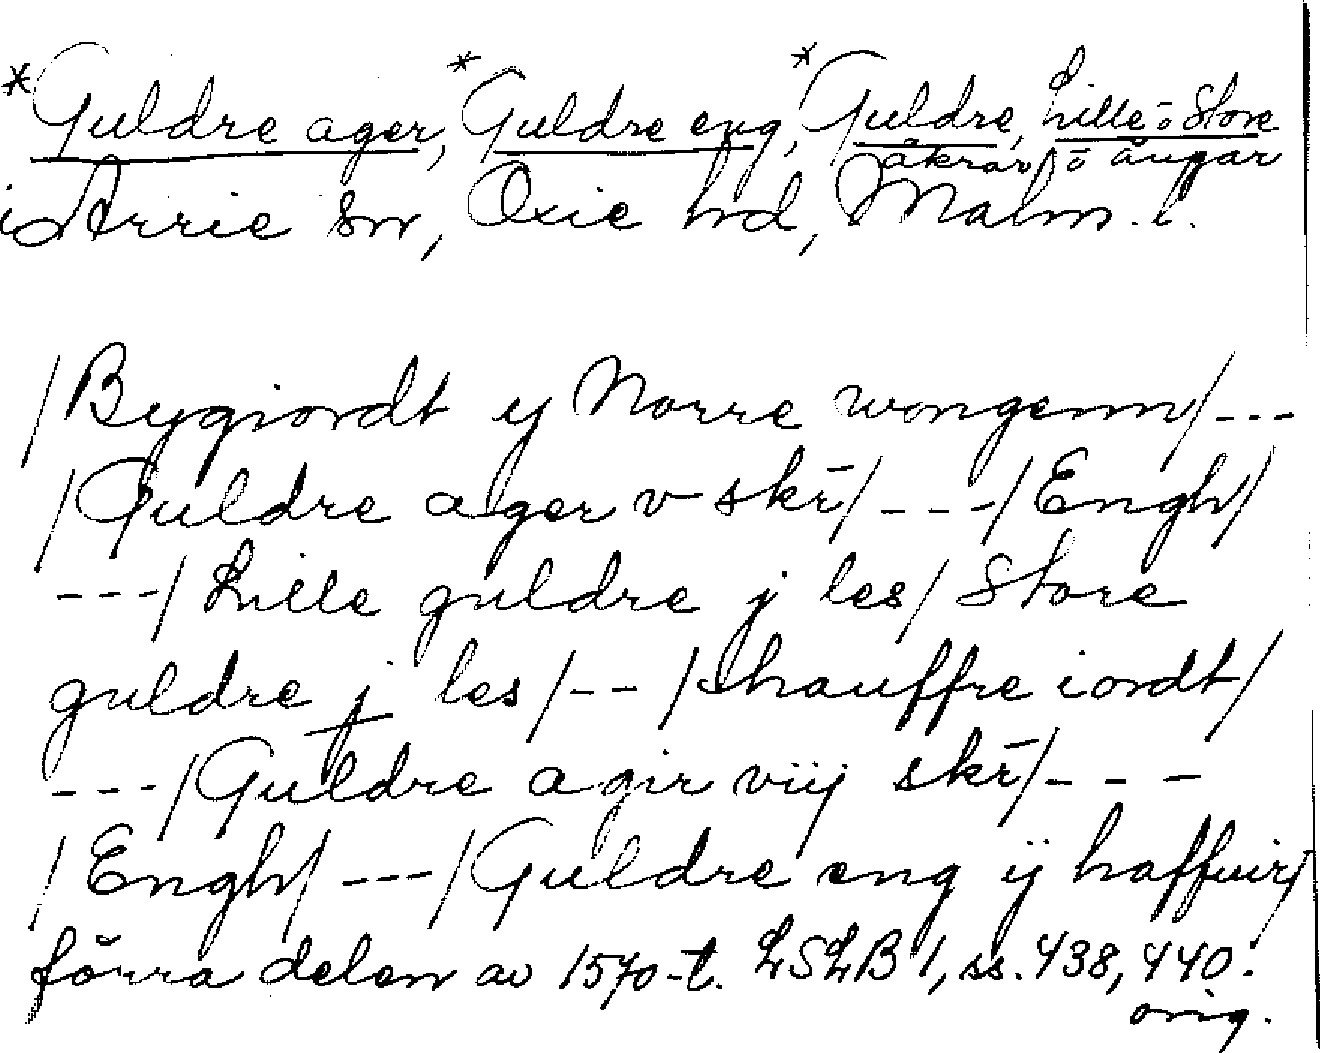 *Guldre ager, *Guldre eng, *Guldre, Lille o Store
åkrar o ängar
i Arrie sn, Oxie hd, Malm. l.
/Bygiordt ij Norre wongenn/---
/Guldre ager v skr̄/---/Engh/
---/Lille guldre j les/Store
guldre j les/--/Shauffre iordt/
---/Guldre agir viij skr̄/---
/Engh/---/Guldre eng ij haffuir/
förra delen av 1570-t. LSLB 1, ss. 438, 440.
orig.